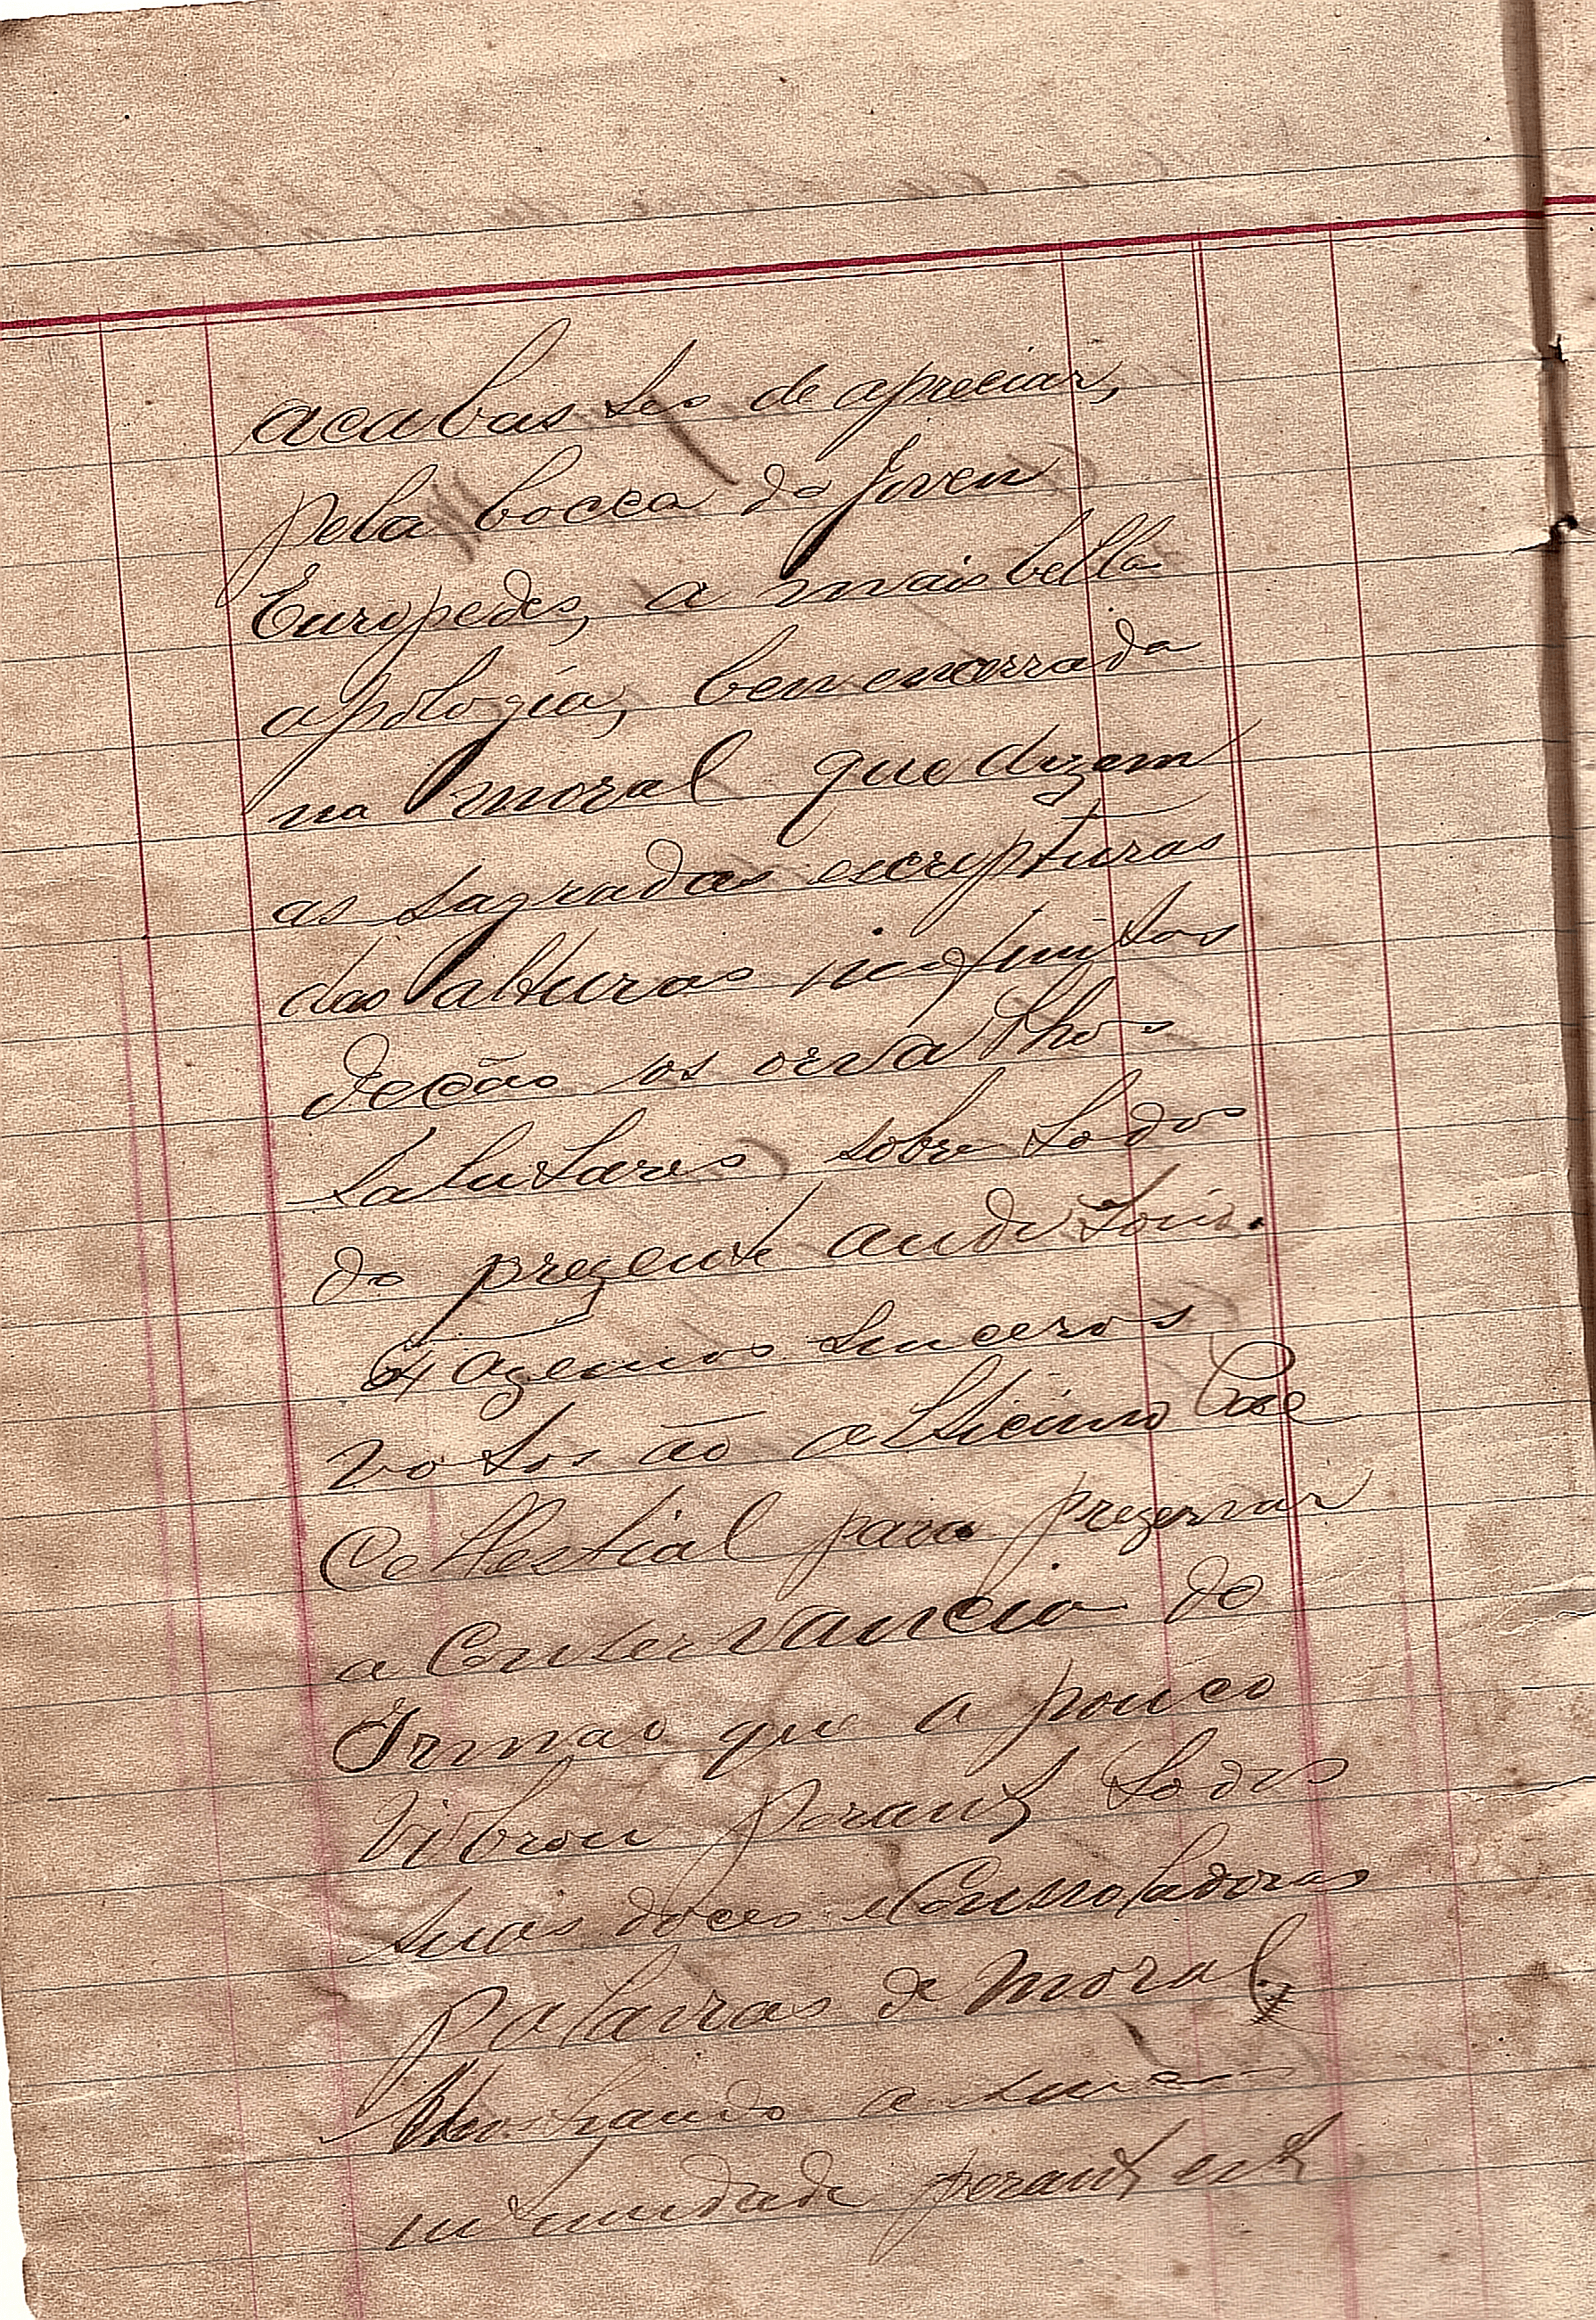 acabastes de apreciar,
pela bocca do joven
Euripedes, a mais bella
apologia, bem encerrada
na moral que dizem
as sagradas escripturas
das alturas infinitas
deção os orvalhos
salutares, sobre todos
do prezente auditorio.
Fazemos sinceros
votos ao alticimo Pae
Cellestial para prezervar
a Conservancia do
Irmão que a pouco
vibrou perante todos
suas doces e Consoladoras
palavras de moral,
Mostrando a sua
intimidade perante este